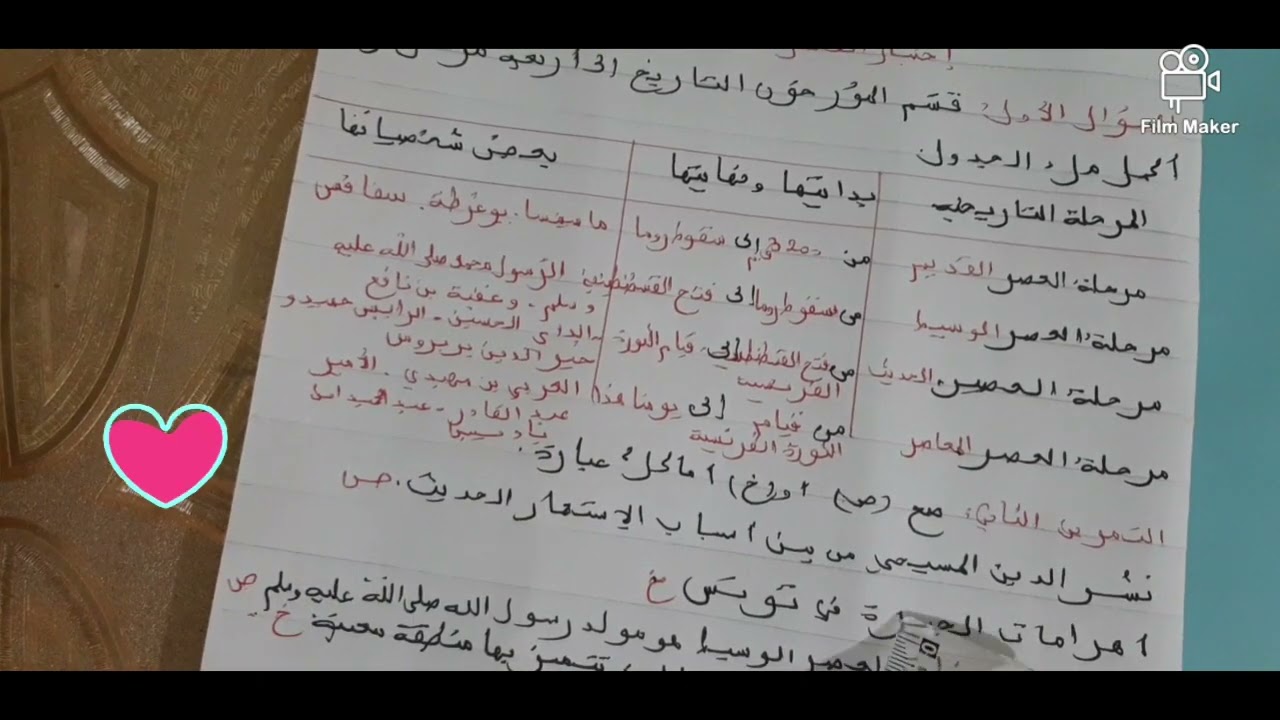 Film Maker
السؤال الأول: قسم المؤرخون التاريخ الى أربعة
أكمل ملء الجدول
المرحلة التاريخية بدايتها ونهايتها بعض شخصياتها
مرحلة العصر القديم من 3200 ق م إلى سقوط روما ماسينيسا. يوغرطة. سفاقص
مرحلة العصر الوسيط من سقوط روما إلى فتح القسطنطينية الرسول محمد صلى الله عليه
وسلم. وعقبة بن نافع
مرحلة العصر الحديث من فتح القسطنطينية إلى قيام الثورة الفرنسية الداي الحسين - الرايس حميدو
خير الدين بربروس
مرحلة العصر المعاصر من قيام الثورة الفرنسية إلى يومنا هذا العربي بن مهيدي. الأمير
عبد القادر - عبد الحميد ابن
باديس
التمرين الثاني: ضع (ص) أو (خ) أمام كل عبارة.
نشر الدين المسيحي من بين أسباب الإستعمار الحديث. ص
اهرامات في تونس خ
العصر الوسيط هو مولد رسول الله صلى الله عليه وسلم ص
تتميز بها منطقة معينة خ